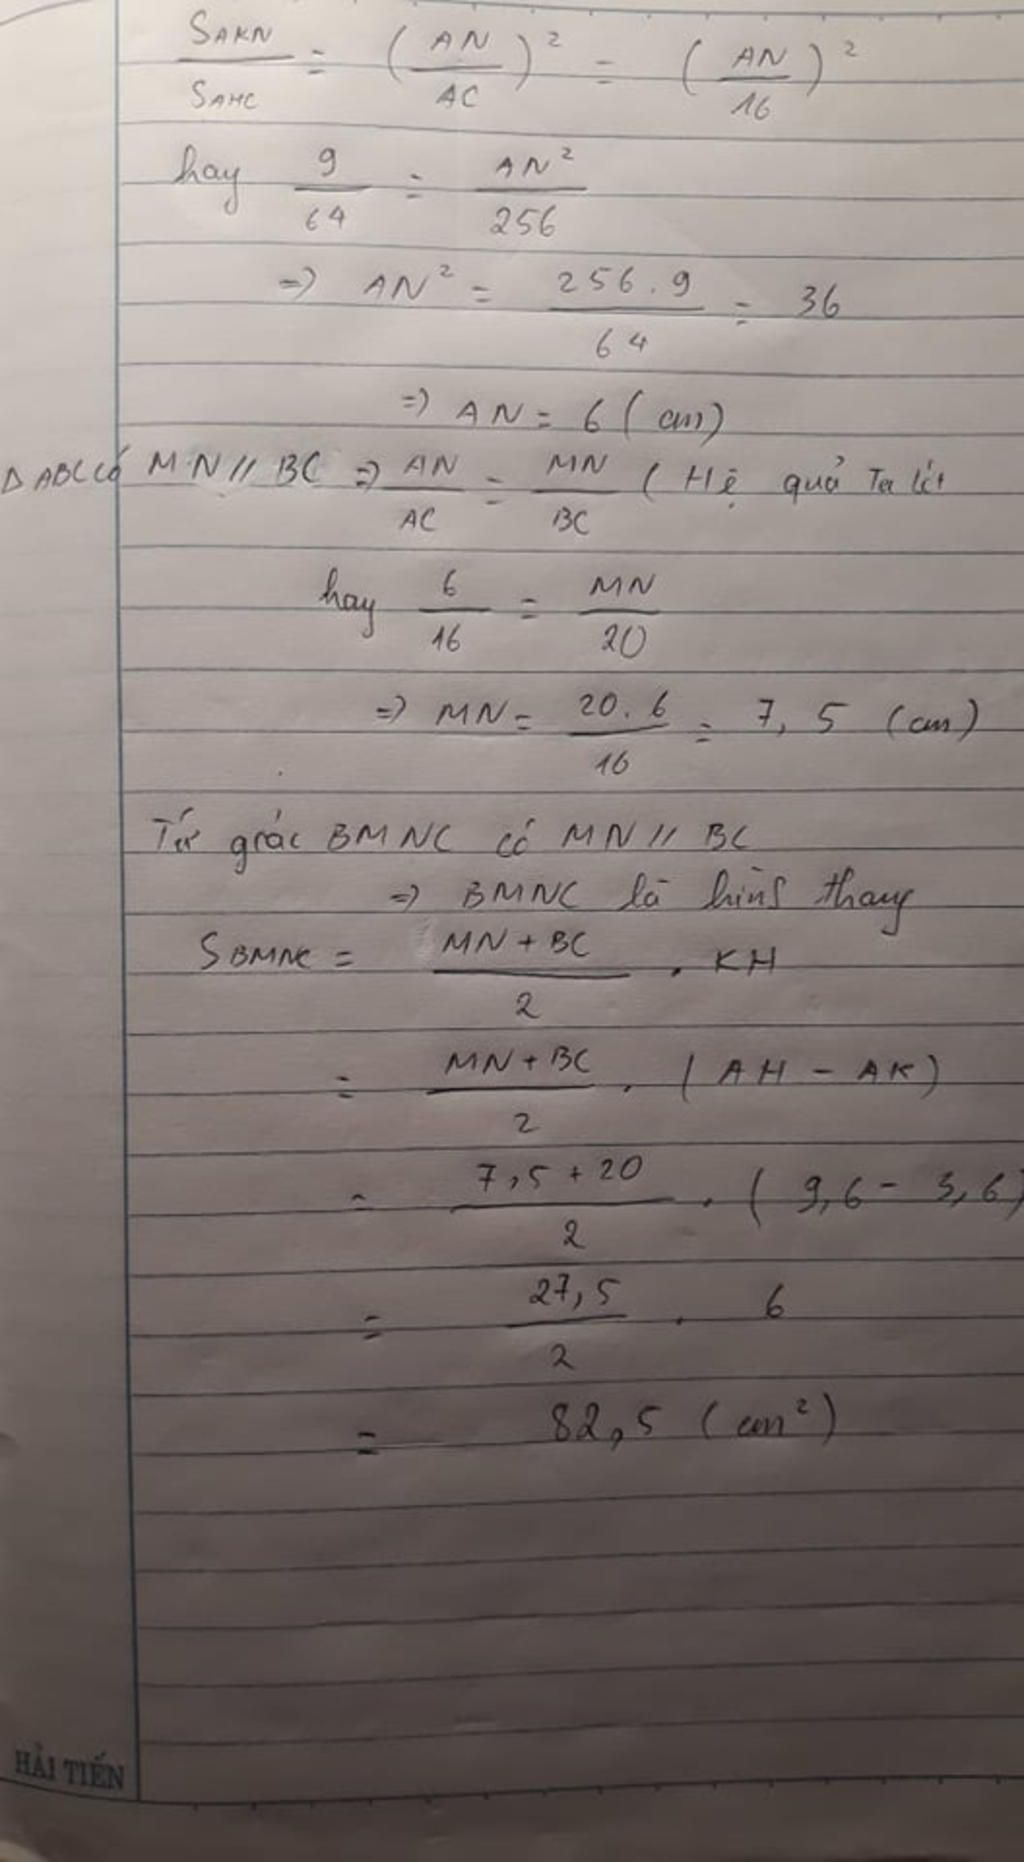 S_AKN / S_AHC = (AN / AC)² = (AN / 16)²
hay 9 / 64 = AN² / 256
=> AN² = 256 . 9 / 64 = 36
=> AN = 6 (cm)
Δ ABC có MN // BC => AN / AC = MN / BC ( Hệ quả Ta lét
hay 6 / 16 = MN / 20
=> MN = 20 . 6 / 16 = 7,5 (cm)
Tứ giác BMNC có MN // BC
=> BMNC là hình thang
S_BMNC = MN + BC / 2 . KH
= MN + BC / 2 . ( AH - AK )
= 7,5 + 20 / 2 . ( 9,6 - 3,6 )
= 27,5 / 2 . 6
= 82,5 ( cm² )
HẢI TIẾN